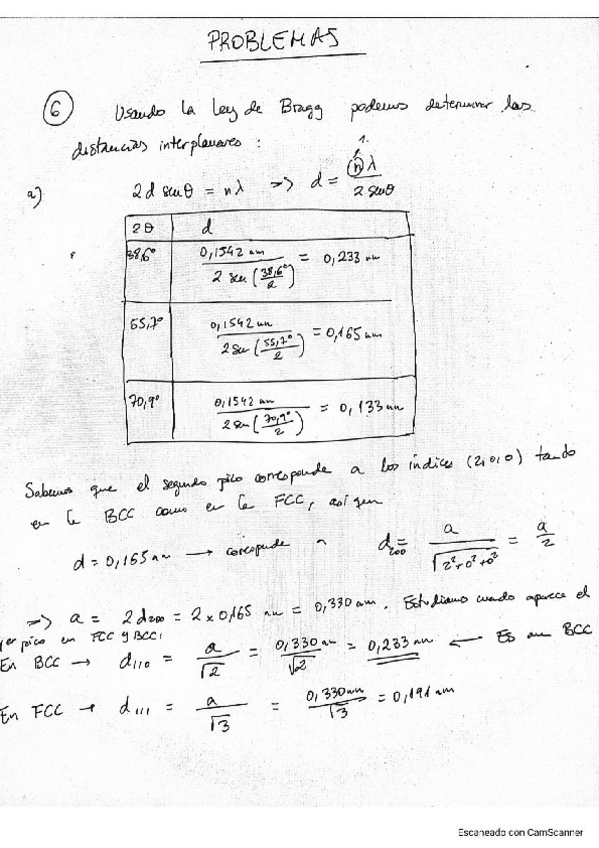 PROBLEMAS
6 Usando la Ley de Bragg podemos determinar las
distancias interplanares :
1.
a) 2d senθ = nλ => d = nλ / 2 senθ
2θ d
38,6° 0,1542 nm / 2 sen(38,6°/2) = 0,233 nm
55,7° 0,1542 nm / 2 sen(55,7°/2) = 0,165 nm
70,9° 0,1542 nm / 2 sen(70,9°/2) = 0,133 nm
Sabemos que el segundo pico corresponde a los índices (2,0,0) tando
en la BCC como en la FCC, así que
d = 0,165 nm → corresponde a d200 = a / √2²+0²+0² = a/2
=> a = 2 d200 = 2 x 0,165 nm = 0,330 nm. Estudiamos cuando aparece el
1er pico en FCC y BCC:
En BCC → d110 = a/√2 = 0,330 nm/√2 = 0,233 nm ← Es una BCC
En FCC → d111 = a/√3 = 0,330 nm/√3 = 0,191 nm
Escaneado con CamScanner